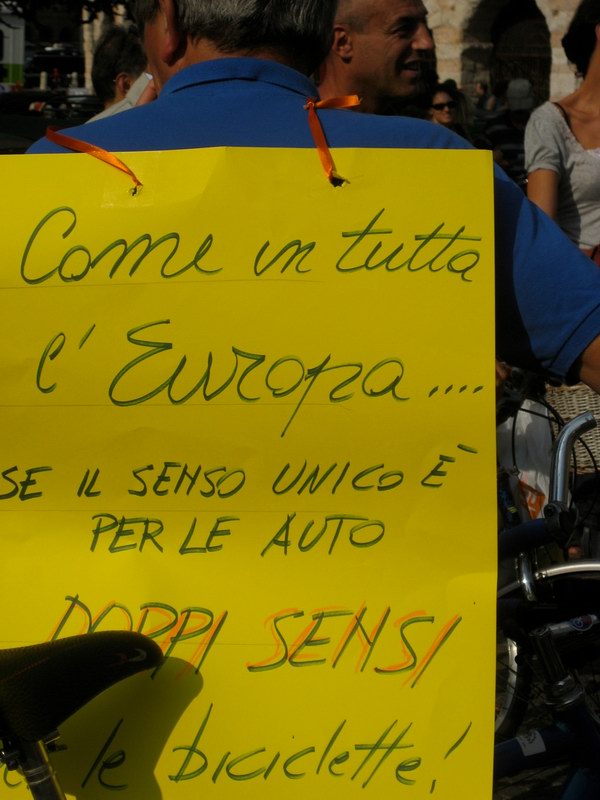 Come in tutta
l'Europa....
SE IL SENSO UNICO È
PER LE AUTO
DOPPI SENSI
le biciclette!